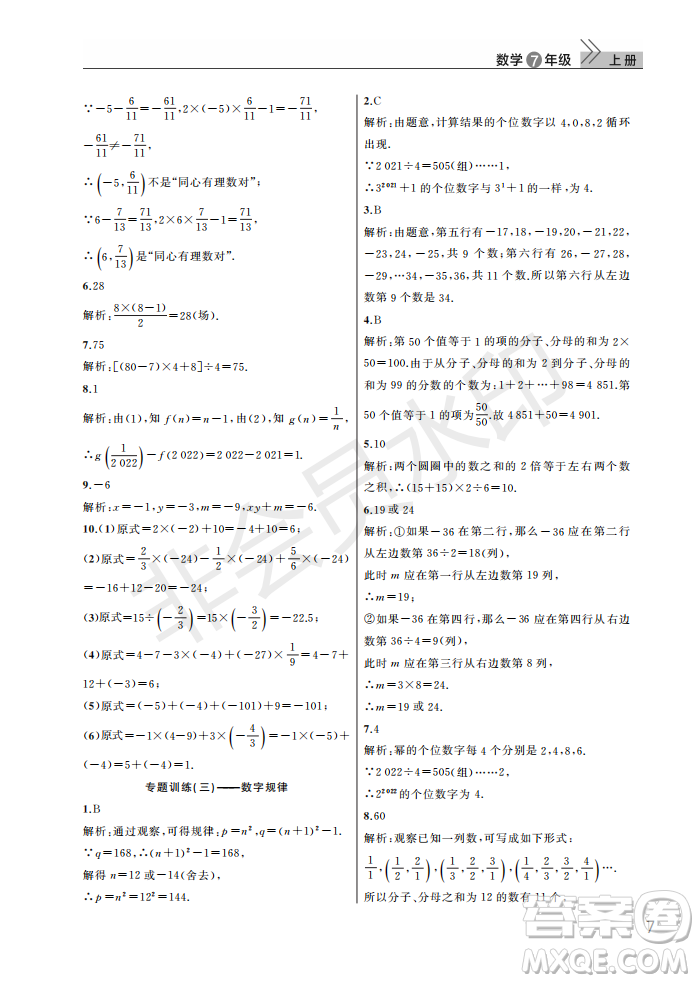 数学7年级 上册
∵-5-6/11=-61/11,2×(-5)×6/11-1=-71/11,
-61/11≠-71/11,
∴(-5,6/11)不是“同心有理数对”;
∵6-7/13=71/13,2×6×7/13-1=71/13,
∴(6,7/13)是“同心有理数对”.
6.28
解析:8×(8-1)/2=28(场).
7.75
解析:[(80-7)×4+8]÷4=75.
8.1
解析:由(1),知 f(n)=n-1,由(2),知 g(n)=1/n,
∴g(1/2 022)-f(2 022)=2 022-2 021=1.
9.-6
解析:x=-1,y=-3,m=-9,xy+m=-6.
10.(1)原式=2×(-2)+10=-4+10=6;
(2)原式=2/3×(-24)-1/2×(-24)+5/6×(-24)
=-16+12-20=-24;
(3)原式=15÷(-2/3)=15×(-3/2)=-22.5;
(4)原式=4-7-3×(-3)+(-27)×1/9=4-7+
12+(-3)=6;
(5)原式=(-5)+(-4)+(-101)+9=-101;
(6)原式=-1×(4-9)+3×(-4/3)=-1×(-5)+
(-4)=5+(-4)=1.
专题训练(三)——数字规律
1.B
解析:通过观察,可得规律:p=n²,q=(n+1)²-1.
∵q=168,∴(n+1)²-1=168,
解得 n=12或-14(舍去),
∴p=n²=12²=144.
2.C
解析:由题意,计算结果的个位数字以 4,0,8,2 循环
出现.
∵2 021÷4=505(组)……1,
∴3²⁰²¹+1 的个位数字与 3¹+1 的一样,为 4.
3.B
解析:由题意,第五行有-17,18,-19,20,-21,22,
-23,24,-25,共 9 个数;第六行有 26,-27,28,
-29,…34,-35,36,共 11 个数.所以第六行从左边
数第 9 个数是 34.
4.B
解析:第 50 个值等于 1 的项的分子、分母的和为 2×
50=100.由于从分子、分母的和为 2 到分子、分母的
和为 99 的分数的个数为:1+2+…+98=4 851.第
50 个值等于 1 的项为50/50.故 4 851+50=4 901.
5.10
解析:两个圆圈中的数之和的 2 倍等于左右两个数
之积,∴(15+15)×2÷6=10.
6.19 或 24
解析:①如果-36 在第二行,那么-36 应在第二行
从左边数第 36÷2=18(列),
此时 m 应在第一行从左边数第 19 列,
∴m=19;
②如果-36 在第四行,那么-36 应在第四行从右边
数第 36÷4=9(列),
此时 m 应在第三行从右边数第 8 列,
∴m=3×8=24.
∴m=19 或 24.
7.4
解析:幂的个位数字每 4 个分别是 2,4,8,6.
∵2 022÷4=505(组)……2,
∴2²⁰²² 的个位数字为 4.
8.60
解析:观察已知一列数,可写成如下形式:
1/1,(1/2,2/1),(1/3,2/2,3/1),(1/4,2/3,3/2,4/1)….
所以分子、分母之和为 12 的数有 11 个.
7
非会员水印
答案圈
MXQE.COM